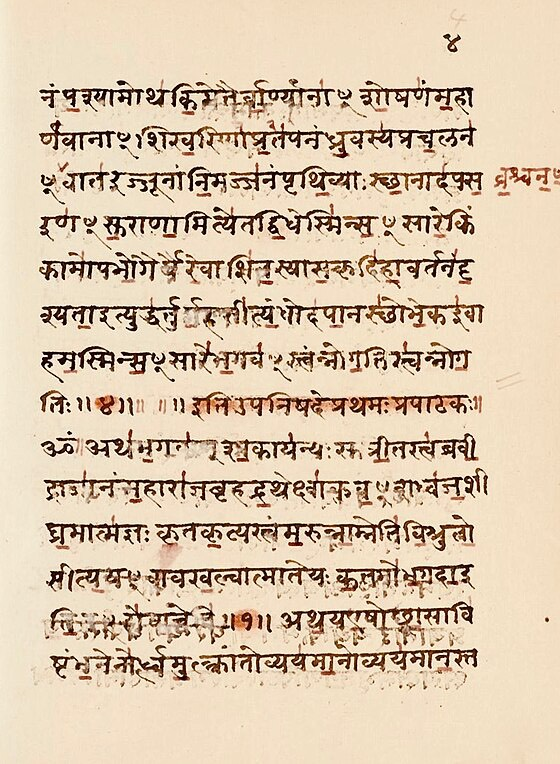 ४
नंपश्यामोथकिमेतैर्वाण्यांनाꣳशोषणंमहा
र्णवानाꣳशिखरिणांप्रतपनंध्रुवस्यप्रचलनं
ꣳवातरज्जूनांनिमज्जनंपृथिव्याःस्थानादपस व्रश्चनꣳ
रणꣳसुराणामित्येतद्विधेस्मिन्सꣳसारेकिं
कामोपभोगैर्यैरेवाशितस्यासकृदिहावर्तनंदृ
श्यताइत्युद्धर्तुमर्हसीत्यंधोदपानस्थोभेकइवा
हमस्मिन्सꣳसारेभगवꣳस्त्वंन्नोगतिस्त्वन्नोग
तिः॥४॥ ॥इतिउपनिषदेप्रथमःप्रपाठकः॥
ॐअथभगवान्शाकायन्यःसुप्रीतस्त्वब्रवी
द्राजानंमहाराजबृहद्रथेक्ष्वाकुवꣳशध्वजशी
घ्रमात्मज्ञःकृतकृत्यस्त्वंमरुन्नाम्नेतिविश्रुतो
सीत्ययꣳवावखल्वात्मातेयःकतमोभगवाइ
ति होवाचेति॥१॥अथयएषोच्छ्वासावि
ष्टंभनेनोर्ध्वमुत्क्रांतोव्ययमानोव्ययमानस्त